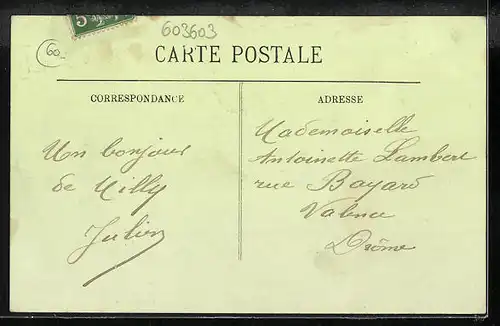 5
603603
60
CARTE POSTALE
CORRESPONDANCE
ADRESSE
Un bonjour
de Milly
Julien
Mademoiselle
Antoinette Lambert
rue Bayard
Valence
Drôme